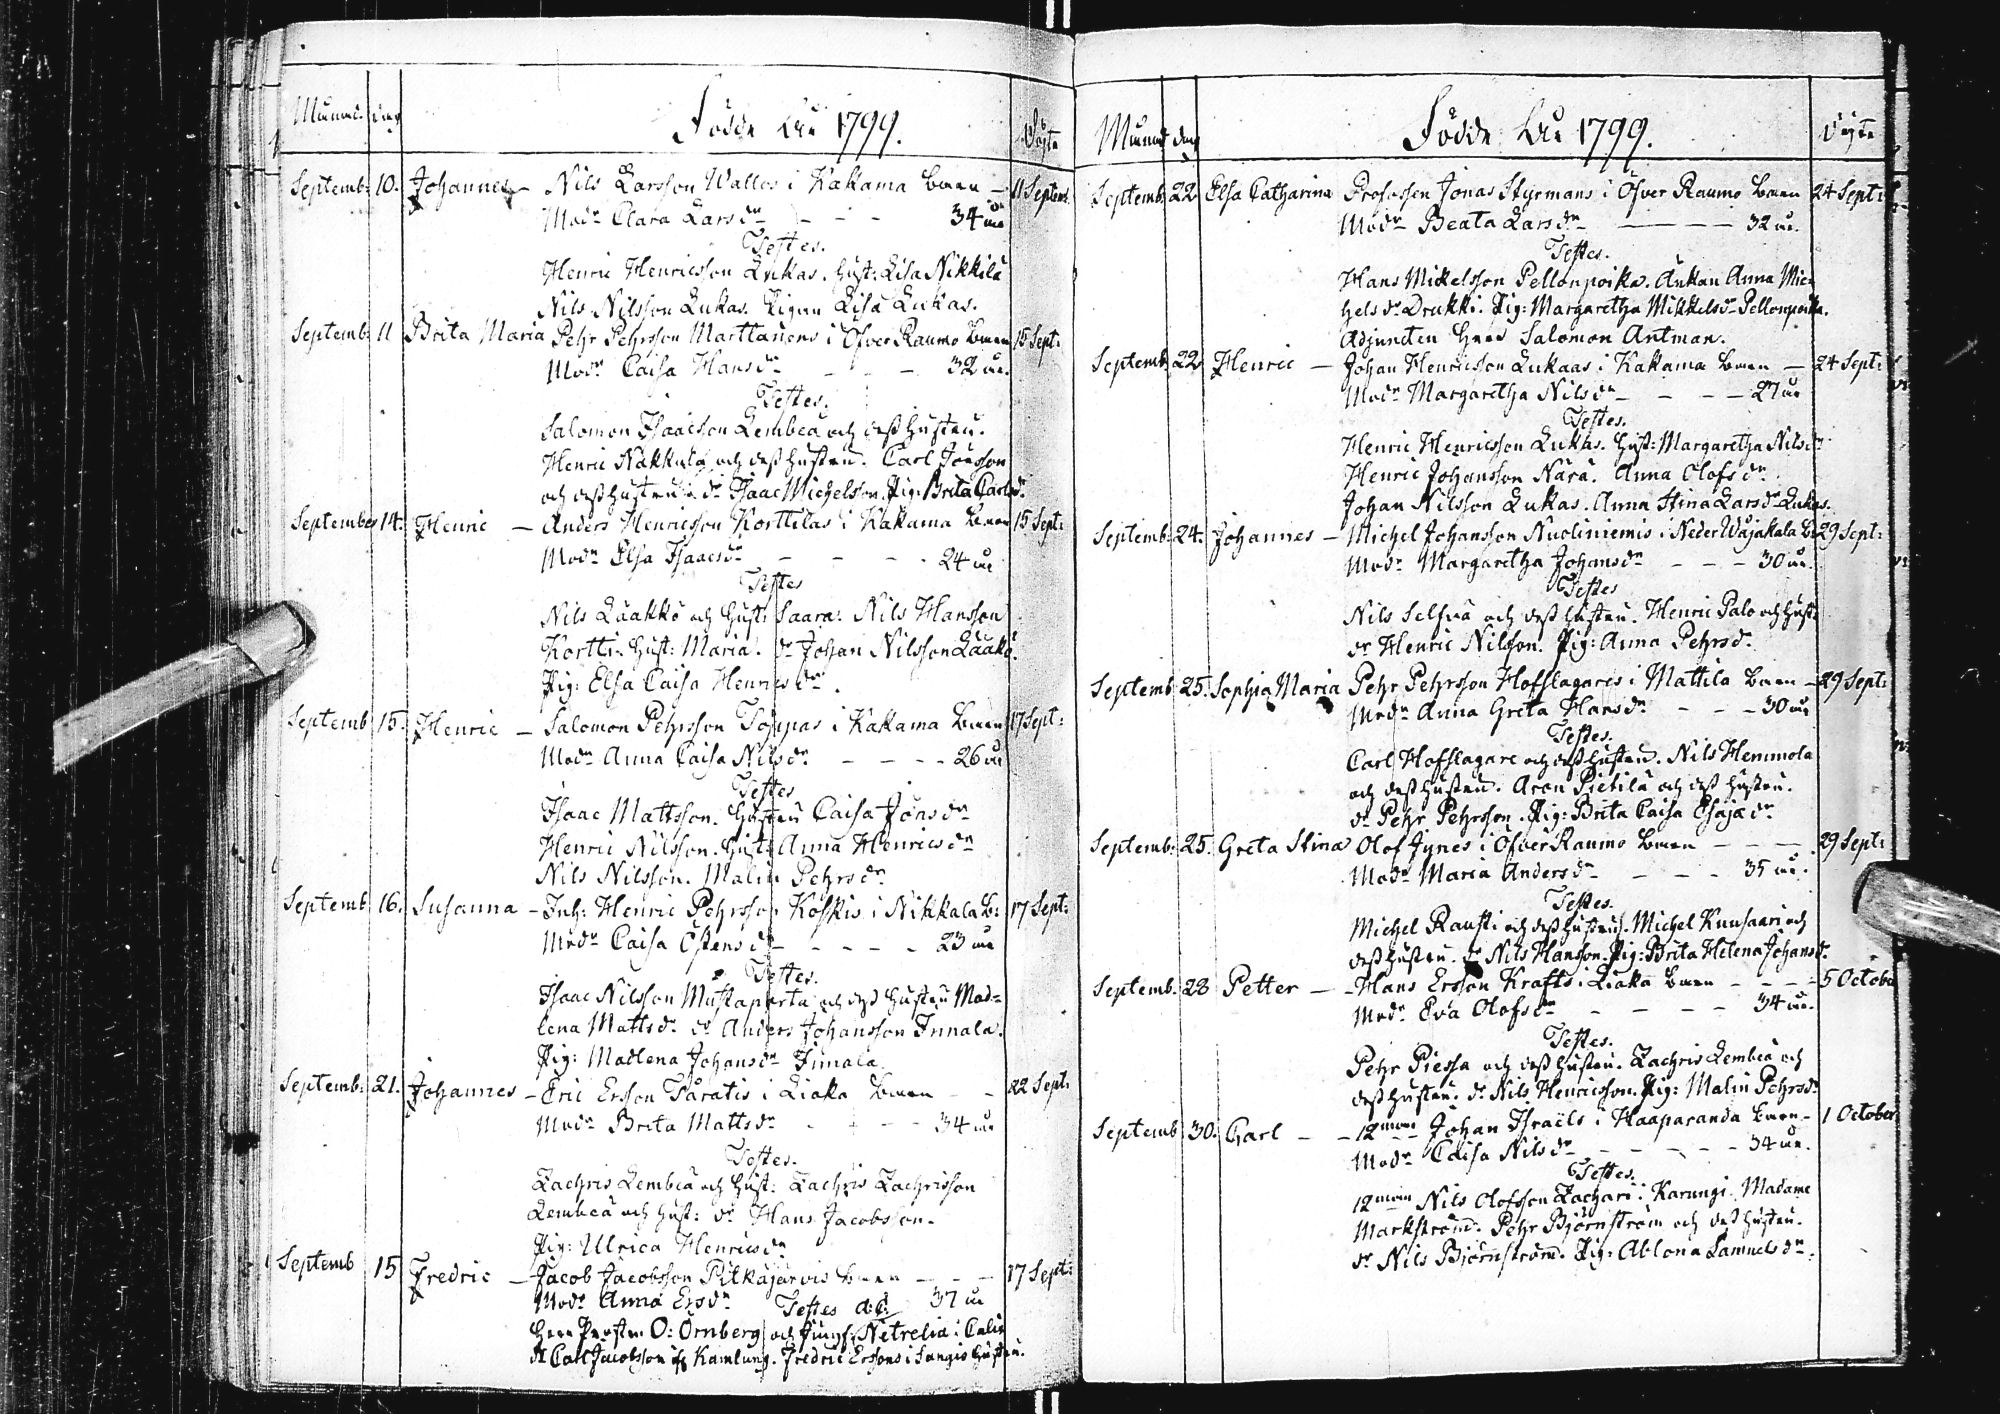 Månad. dag Födde åhr 1799. Döpte
Septemb: 10. Johannes – Nils Larsson Wallos i Kakama barn – 11 Septem:
Modr Clara Larsdr – – – 34 år
Testes.
Henric Henricsson Lukas. Hust: Lisa Nikkilä
Nils Nilsson Lukas. Pigan Lisa Lukas.
Septemb: 11 Brita Maria Pehr Pehrsson Marttanens i Öfver Raumo barn 15 Sept:
Modr Caisa Hansdr – – – 32 år.
Testes.
Salomon Isaacsson Lembeä och dess hustru.
Henric Nakkula och dess hustru. Carl Jönsson
och dess hustru. dr Isaac Michelsson. Pig: Brita Carlsdr
September 14. Henric – Anders Henricsson Korttilas i Kakama barn 15 Sept:
Modr Elsa Isaacsdr – – – 24 år
Testes
Nils Lääkkö och Hust: Saara. Nils Hansson
Kortti. Hust: Maria. dr Johan Nilsson Lääkö.
Pig: Elsa Caisa Henricsdr.
Septemb 15. Henric – Salomon Pehrsson Toppas i Kakama barn 17 Sept:
Modr Anna Caisa Nilsdr – – – – 26 år
Testes
Isaac Mattsson. Hustru Caisa Jönsdr
Henric Nilsson. Hust: Anna Henricsdr
Nils Nilsson. Malin Pehrsdr
Septemb 16. Susanna – Inh: Henric Pehrsson Koskis i Nikkala B: 17 Sept:
Modr Caisa Östensdr – – – – 23 år
Testes.
Isaac Nilsson Mustaparta och dess hustru Mad=
lena Mattsdr. dr Anders Johansson Innala.
Pig: Madlena Johansdr Innala.
Septemb: 21. Johannes – Eric Ersson Taratis i Liaka barn – – 22 Sept:
Modr Brita Mattsdr – – – – 34 år
Testes.
Zachris Lembeä och Hust: Zachris Zachrisson
Lembeä och Hust: dr Hans Jacobsson.
Pig: Ulrica Henricsdr
Septemb 15 Fredric – Jacob Jacobsson Pitkäjärvis barn – – – 17 Sept:
Modr Anna Ersdr 37 år
Testes
O: Örnberg och Jungf: Netrelia i Calix
dr Carl Jacobsson Kamlung. Fredric Erssons i Sangis hustru.
Månad dag Födde åhr 1799. Döpte
Septemb: 22 Elsa Catharina Profossen Jonas Styrmans i Öfver Raumo barn 24 Sept:
Modr Beata Larsdr – – – – – 32 år.
Testes.
Hans Mickelsson Pellonpoika. Änkan Anna Mic=
helsdr Drukki. Pig: Margaretha Mikkelsdr Pellonpoika.
Adjuncten Herr Salomon Antman.
Septemb: 22 Henric – Johan Henricsson Lukaas i Kakama barn – 24 Sept:
Modr Margaretha Nilsdr – – – – 27 år
Testes.
Henric Henricsson Lukas. Hust: Margaretha Nilsdr
Henric Johansson Nara. Anna Olofsdr
Johan Nilsson Lukas. Anna Stina Larsdr Lukas.
Septemb: 24. Johannes – Michel Johansson Nuoliniemis i Neder Wojakala B: 29 Sept:
Modr Margaretha Johansdr – – – 30 år.
Testes
Nils Selfvä och dess hustru. Henric Palo och hust:
dr Henric Nilsson. Pig: Anna Pehrsdr.
Septemb: 25. Sophia Maria Pehr Pehrsson Hofslagares i Mattila barn – 29 Sept:
Modr Anna Greta Hansdr – – – 30 år
Testes.
Carl Hofslagare och dess hustru. Nils Hemmola
och dess hustru. Aron Pietilä och dess hustru.
dr Pehr Pehrsson. Pig: Brita Caisa Esaiædr
Septemb: 25. Greta Stina Olof Jynes i Öfver Raumo barn – – – 29 Sept:
Modr Maria Andersdr – – – – 35 år.
Testes.
Michel Rausti och dess hustru. Michel Kuusaari och
dess hustru. dr Nils Hansson. Pig: Brita Helena Johansdr
Septemb: 28 Petter – – Hans Ersson Krafts i Liaka barn – – – – 5 October
Modr Eva Olofsdr – – – – – 34 år.
Testes.
Pehr Piessa och dess hustru. Zachris Lembeä och
dess hustru. dr Nils Henricsson. Pig: Malin Pehrsdr
Septemb 30. Carl – – 12man Johan Israels i Haaparanda barn – 1 October
Modr Caisa Nilsdr – – – – – 34 år.
Testes.
12man Nils Olofsson Zachari i Karungi. Madame
Markström. Pehr Björnström och dess hustru.
dr Nils Björnström. Pig: Ablona Samuelsdr.